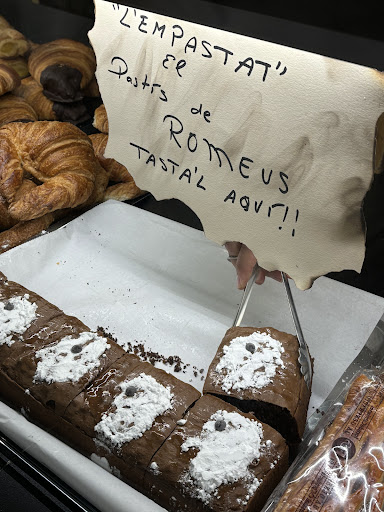 "L'EMPASTAT"
El
Pastís de
ROMEUS
TASTA'L AQUÍ!!